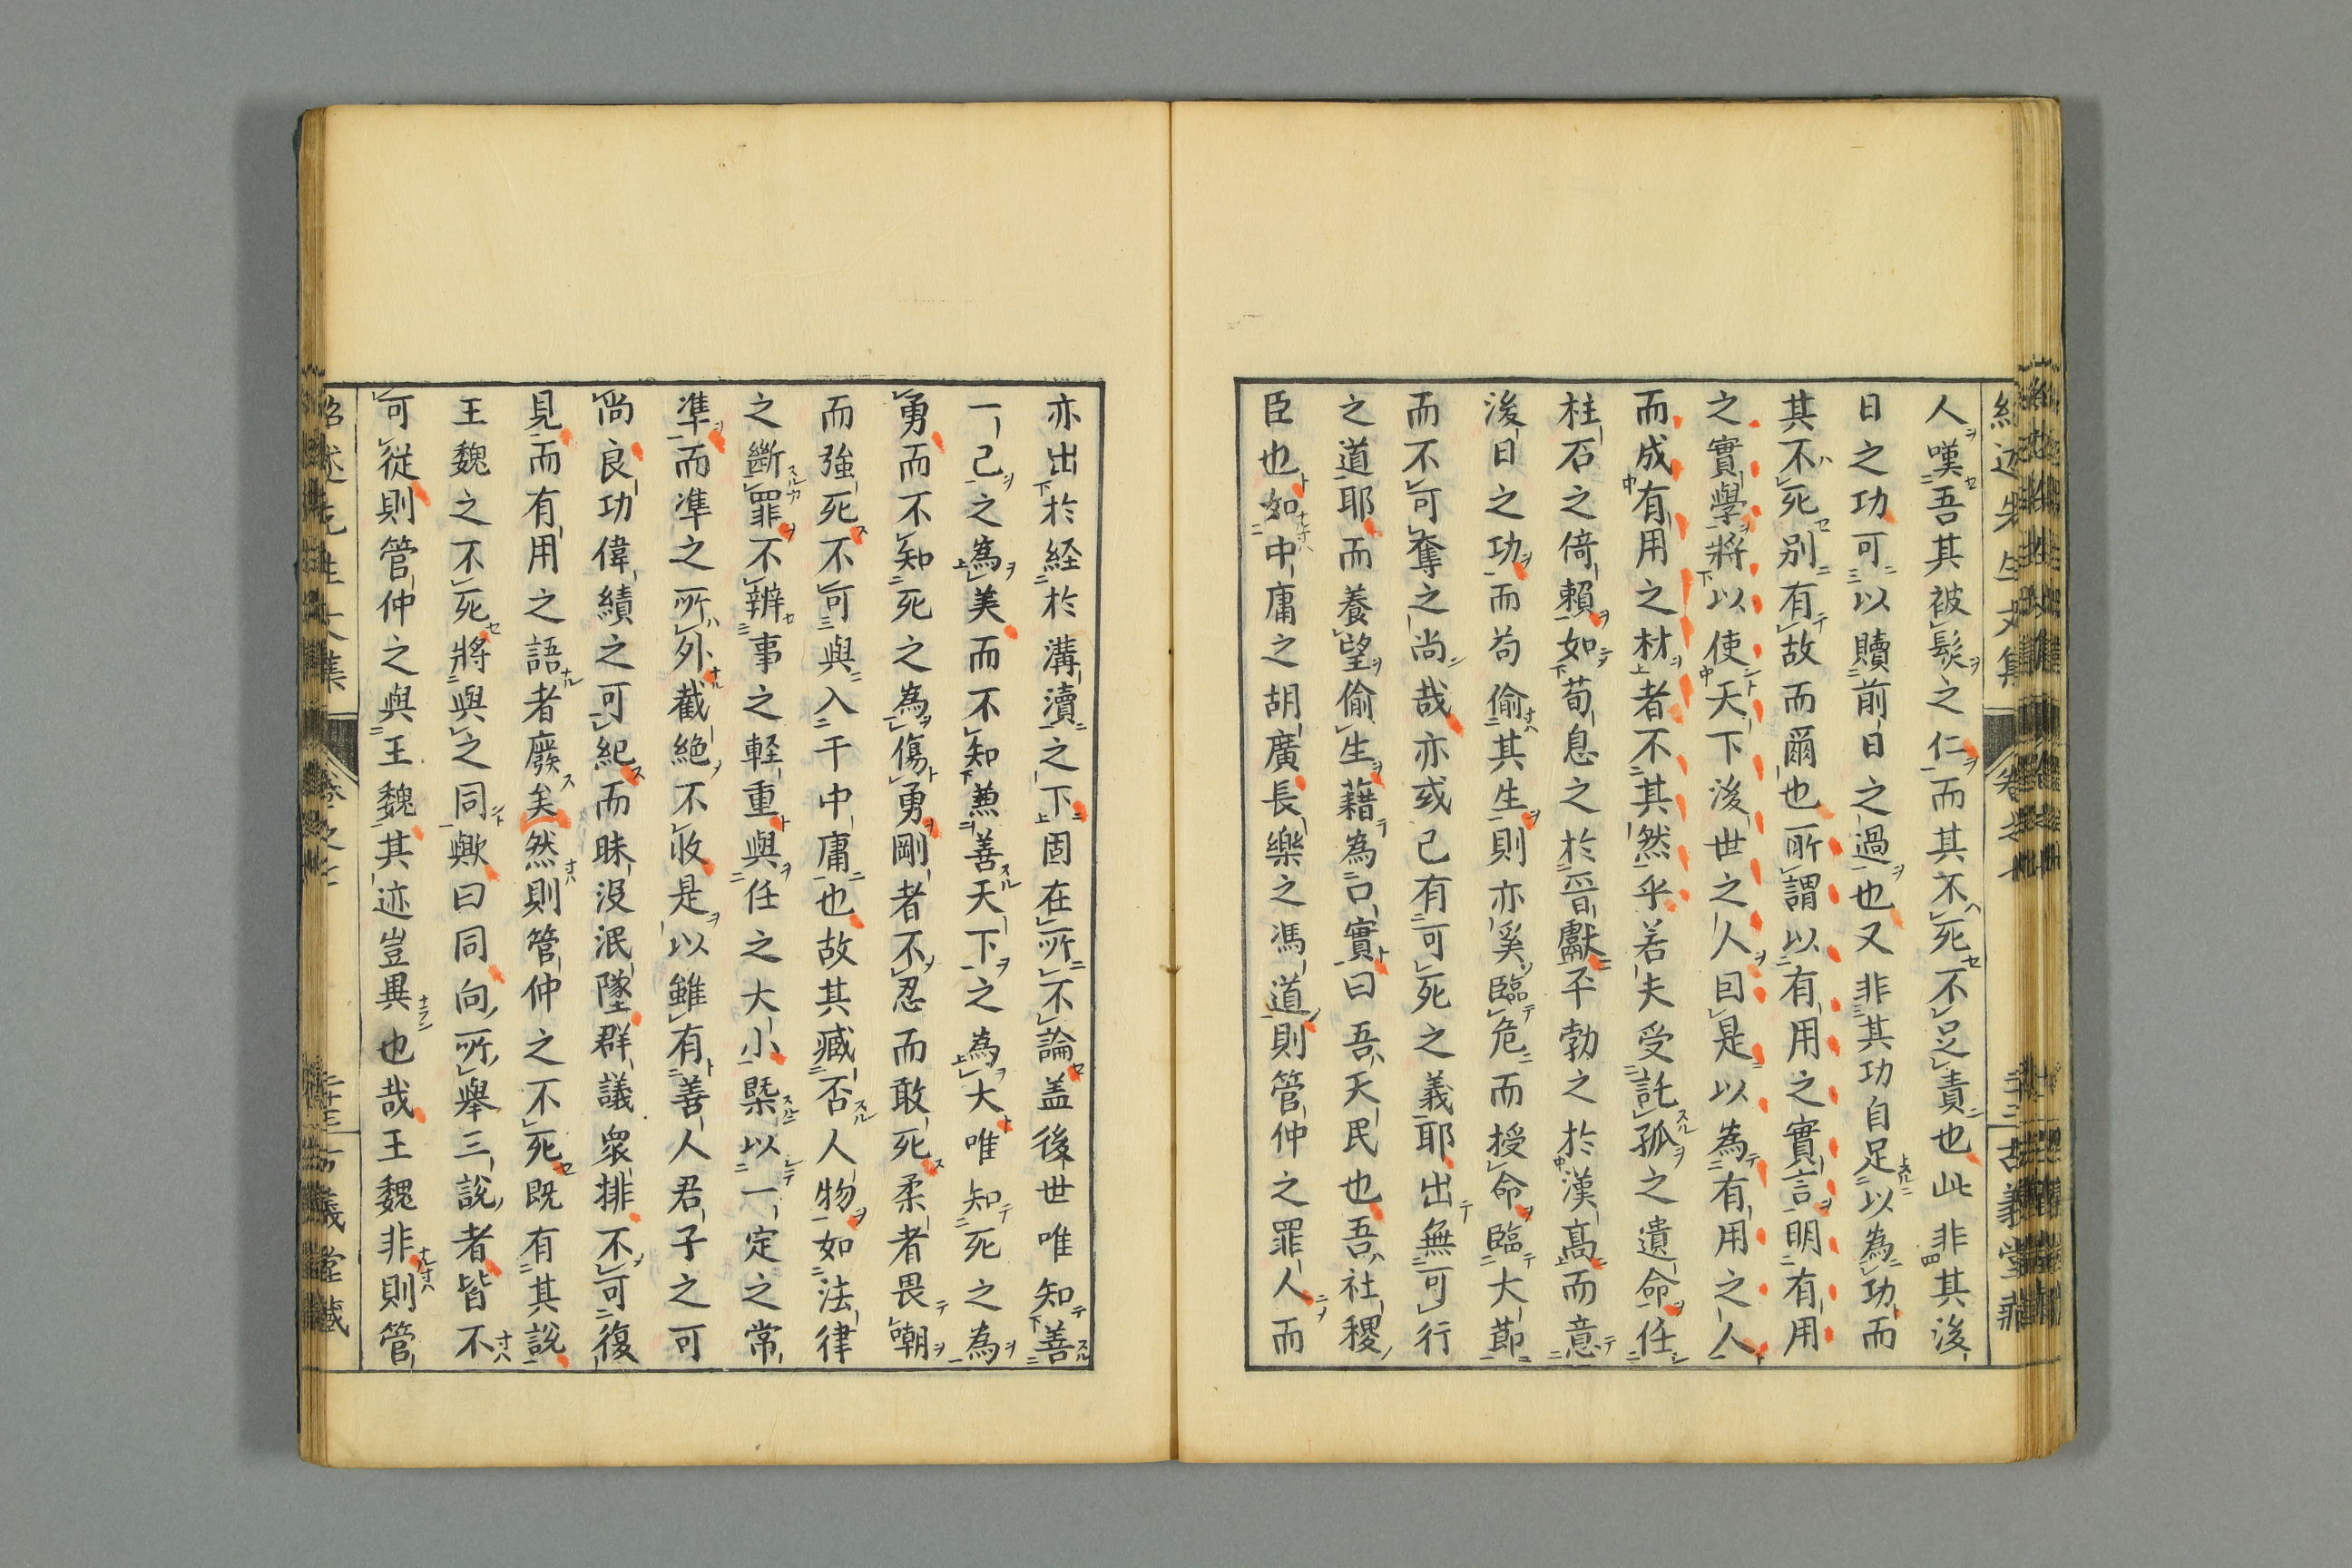 人嘆吾其被髮之仁而其不死不足責也此非其後
日之功可以贖前日之過也又非其功自足以為功而
其不死別有故而爾也所謂以有用之實言明有用
之實學將以使天下後世之人曰是以為有用之人
而成有用之材者不其然乎若夫受託孤之遺命任
柱石之倚賴如荀息之於晉獻平勃之於漢高而意
後日之功而苟偷其生則亦奚臨危而授命臨大節
而不可奪之尚哉亦或已有可死之義耶出無可行
之道耶而養望偷生藉為口實曰吾天民也吾社稷
臣也如中庸之胡廣長樂之馮道則管仲之罪人而
亦出於経於溝瀆之下固在所不論盖後世唯知善
一己之為美而不知兼善天下之為大唯知死之為
勇而不知死之為傷勇剛者不忍而敢死柔者畏嘲
而強死不可與入于中庸也故其臧否人物如法律
之斷罪不辨事之軽重與任之大小槩以一定之常
準而準之所外截絶不收是以雖有善人君子之可
尚良功偉績之可紀而昧沒泯墜群議衆排不可復
見而有用之語者廢矣然則管仲之不死既有其說
王魏之不死將與之同歟曰同向所舉三說者皆不
可從則管仲之與王魏其迹豈異也哉王魏非則管